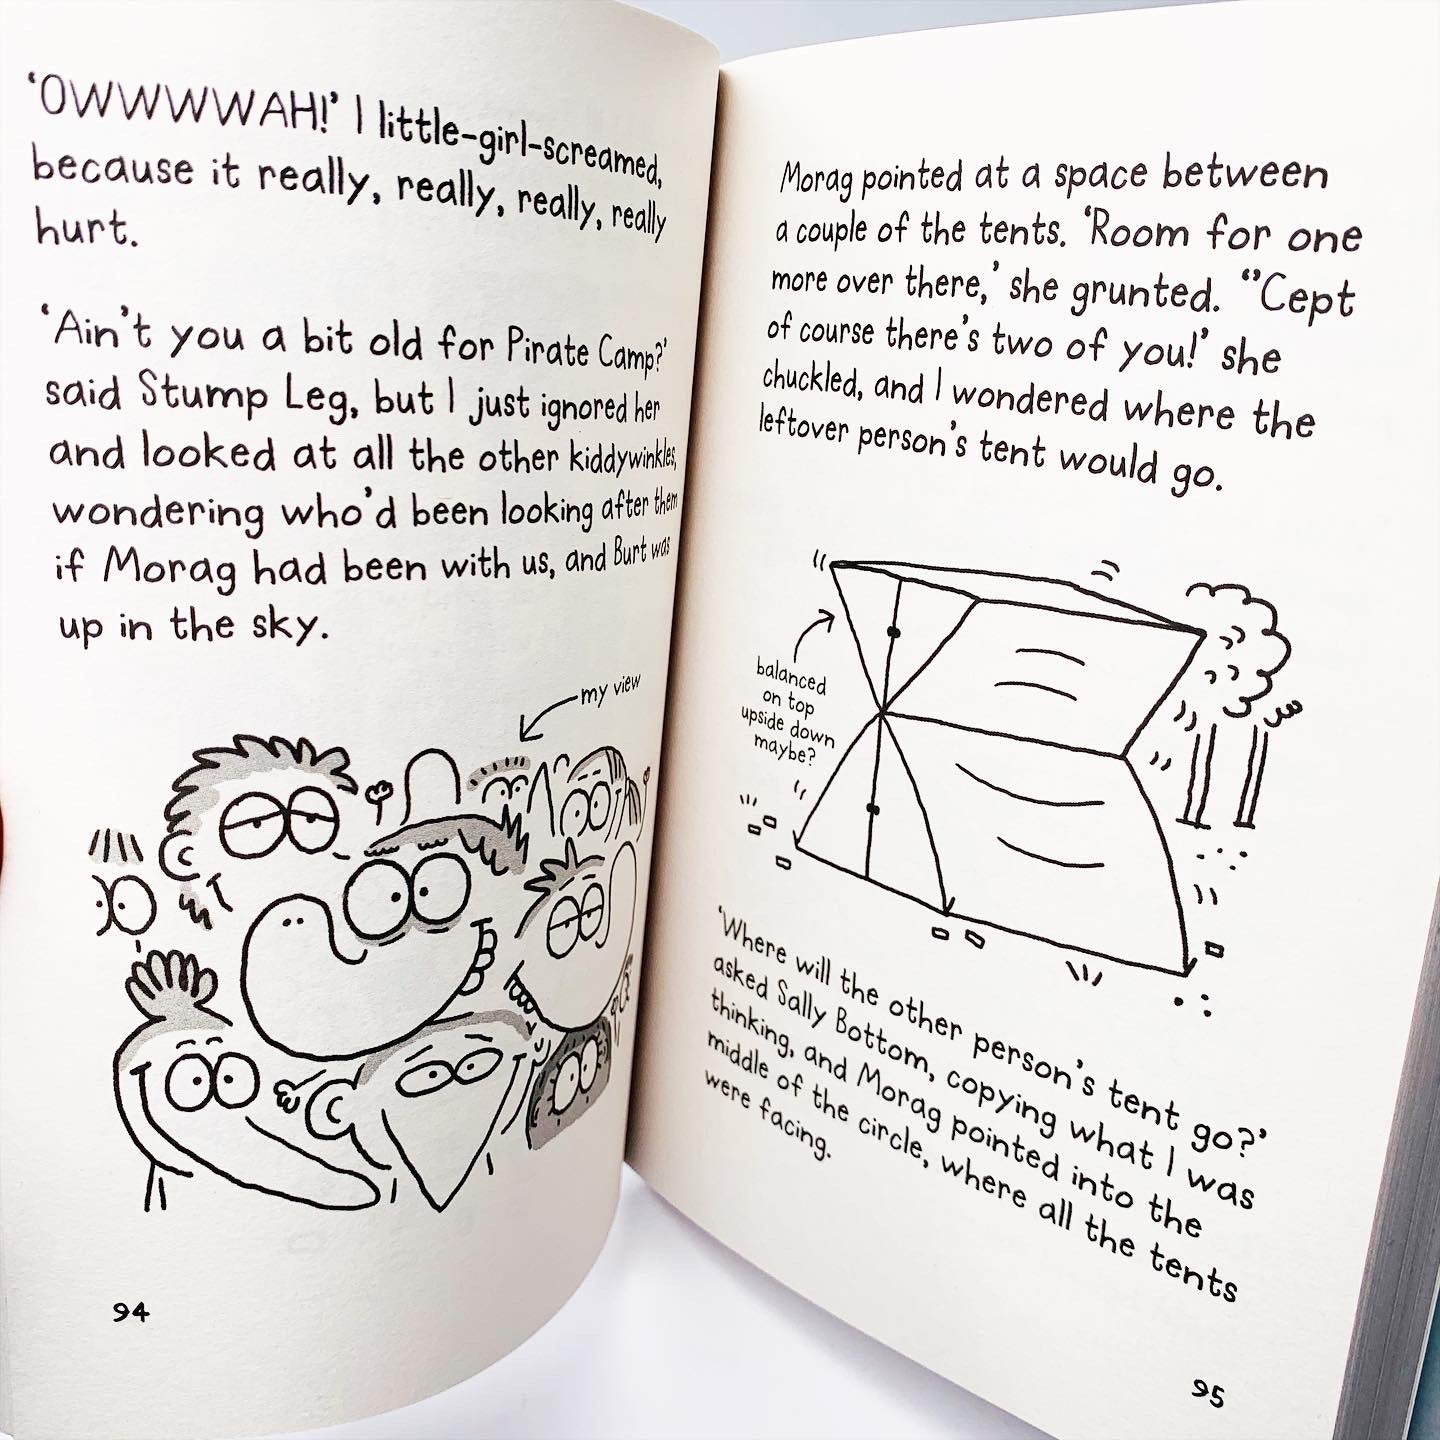 'OWWWWAH!' I little-girl-screamed,
because it really, really, really, really
hurt.
'Ain't you a bit old for Pirate Camp?'
said Stump Leg, but I just ignored her
and looked at all the other kiddywinkles,
wondering who'd been looking after them
if Morag had been with us, and Burt was
up in the sky.
my view
94
Morag pointed at a space between
a couple of the tents. 'Room for one
more over there,' she grunted. ''Cept
of course there's two of you!' she
chuckled, and I wondered where the
leftover person's tent would go.
balanced
on top
upside down
maybe?
'Where will the other person's tent go?'
asked Sally Bottom, copying what I was
thinking, and Morag pointed into the
middle of the circle, where all the tents
were facing.
95